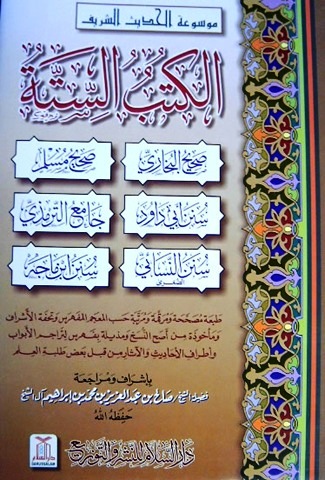 موسوعة الحديث الشريف
الكتب الستة
صحيح البخاري
صحيح مسلم
سنن أبي داود
جامع الترمذي
سنن النسائي
الصغرى
سنن ابن ماجه
طبعة مصححة ومرقمة ومرتبة حسب المعجم المفهرس وتحفة الأشراف
ومأخوذة من أصح النسخ ومذيلة بفهرس لتراجم الأبواب
وأطراف الأحاديث والآثار من قبل بعض طلبة العلم
بإشراف ومراجعة
فضيلة الشيخ صالح بن عبد العزيز بن محمد بن إبراهيم آل الشيخ
حفظه الله
دار السلام للنشر والتوزيع
دار السلام
DARUSSALAM